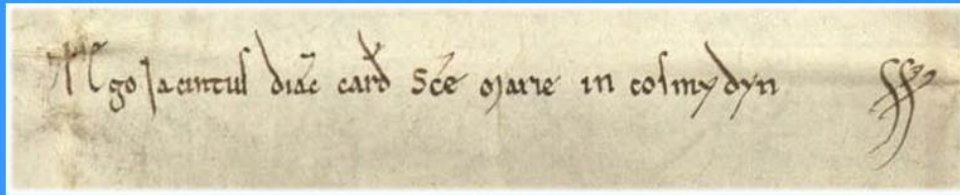 Ego Jacintus diac̄ card̄ Sc̄e Marie in cosmydyn ss